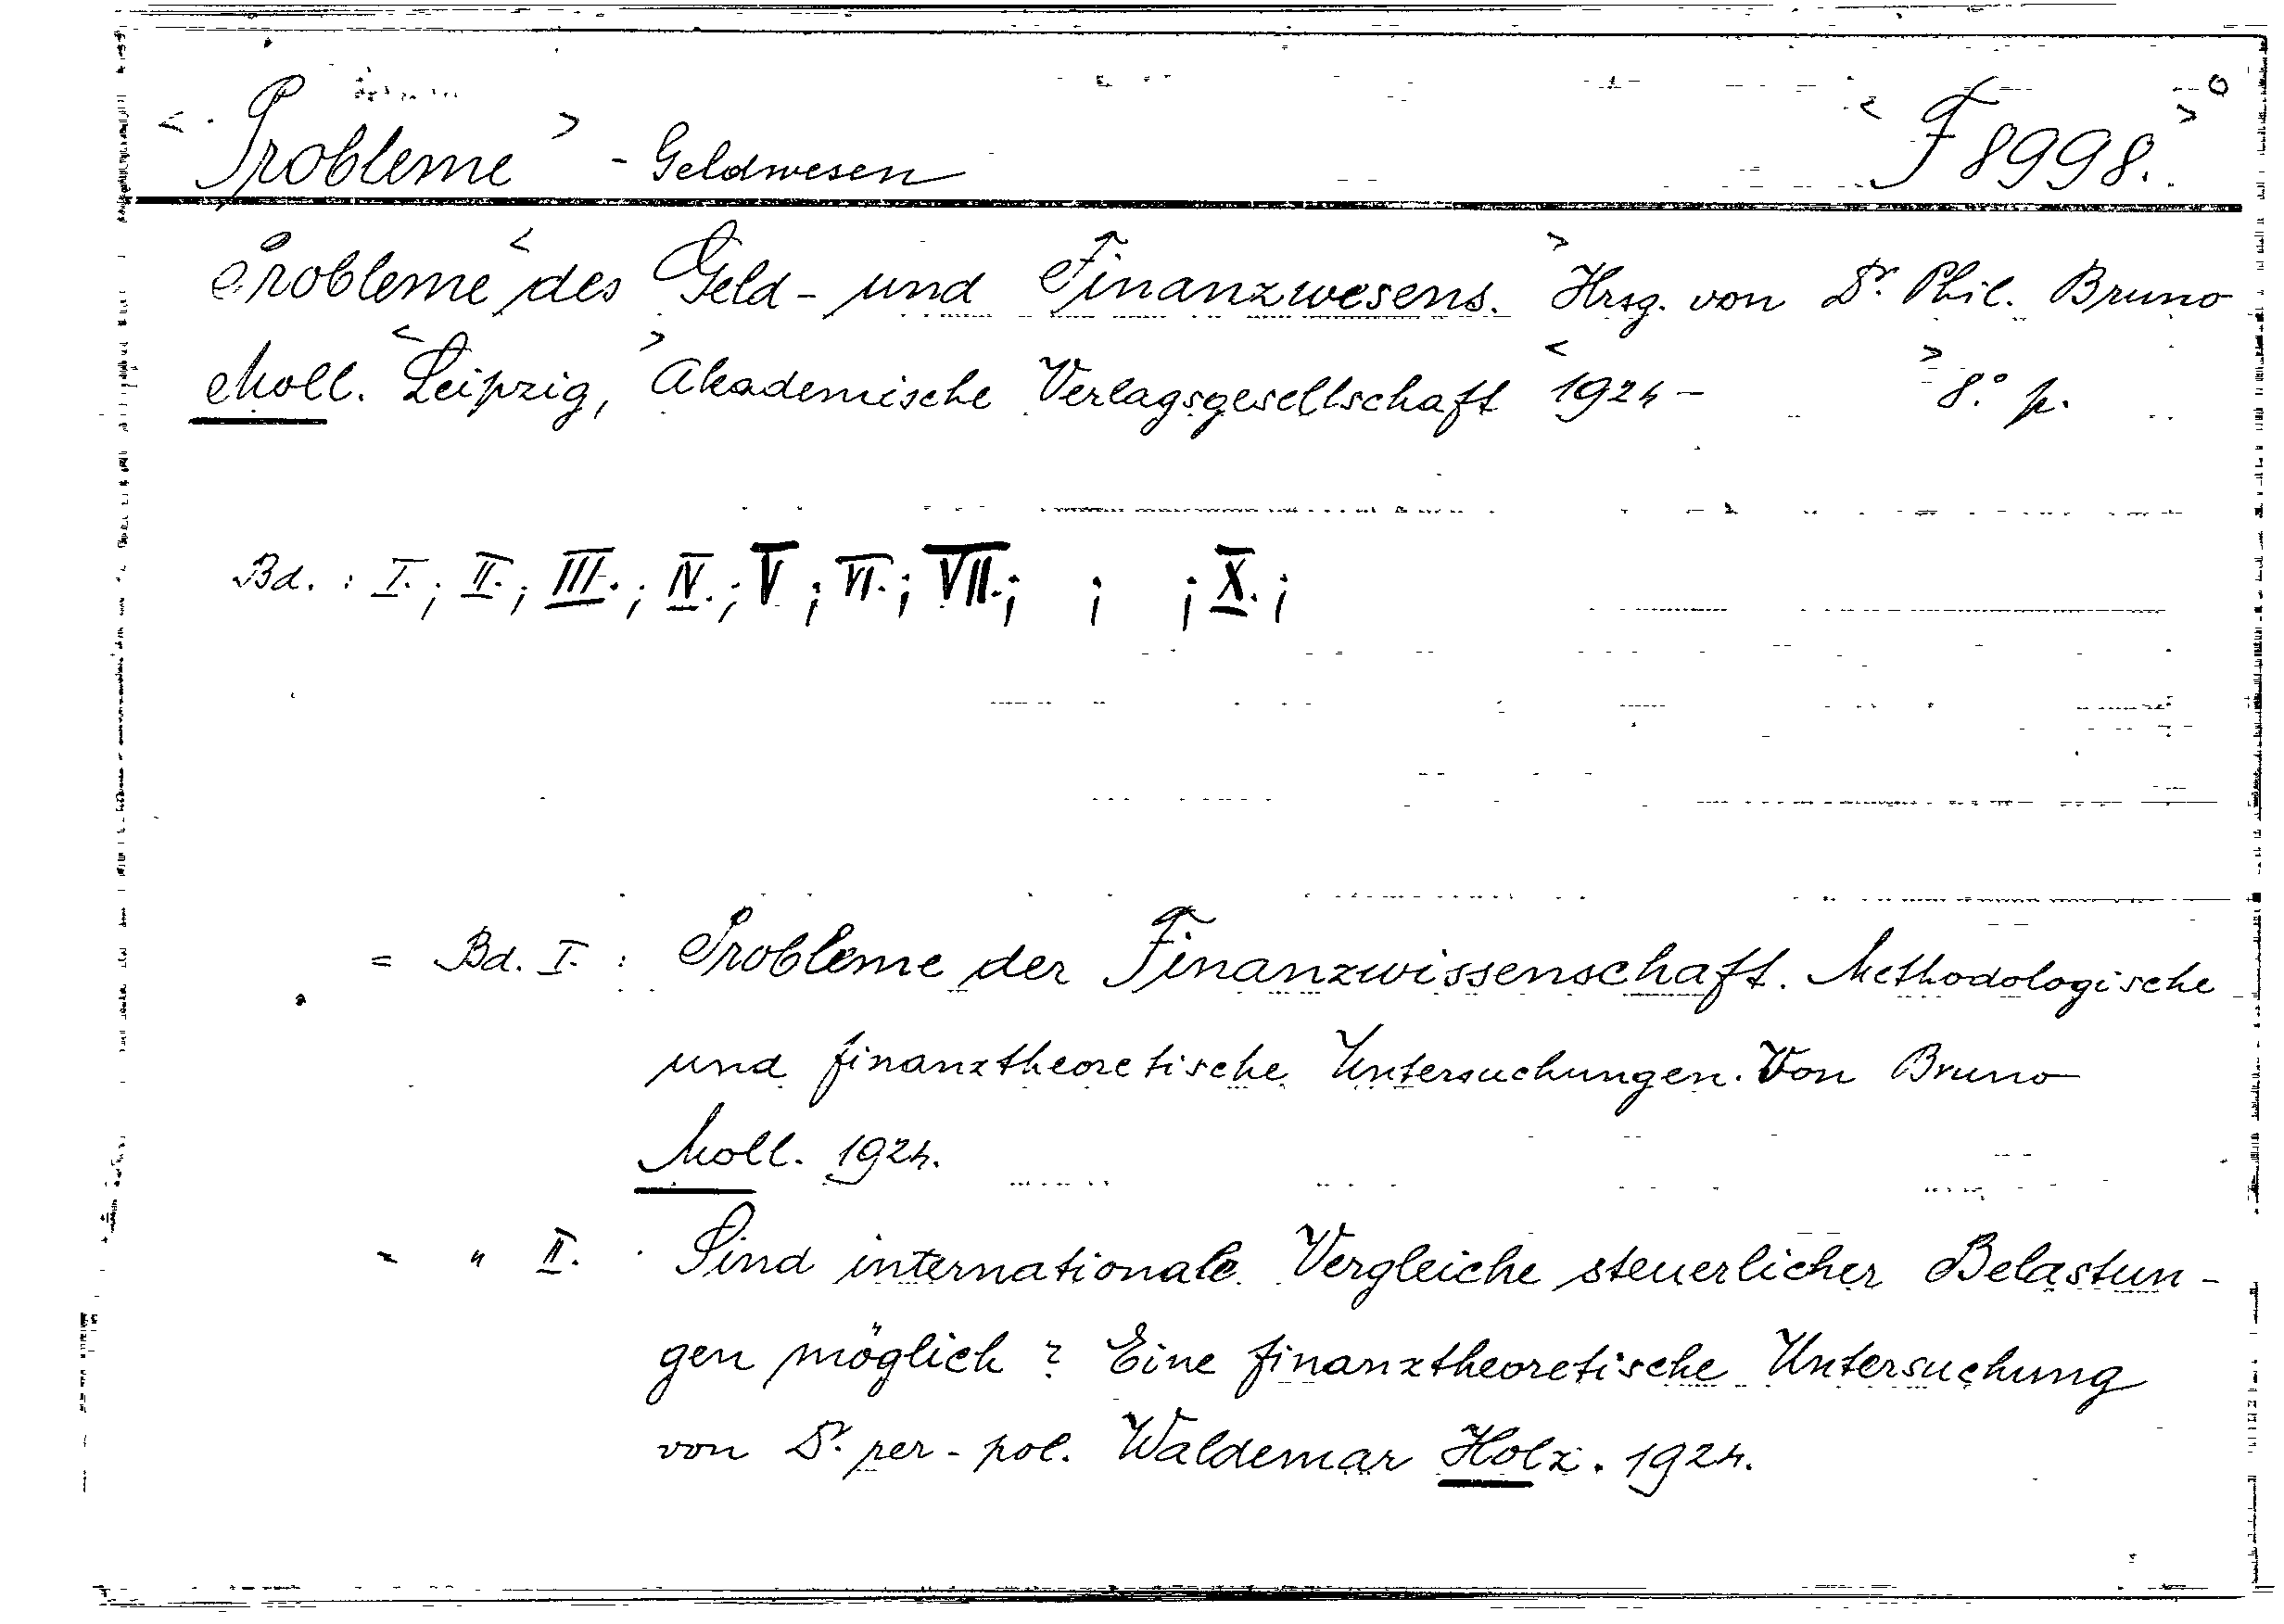 < Probleme > - Geldwesen < F 8998. > 0
Probleme < des Geld- und Finanzwesens. > Hrsg. von Dr. Phil. Bruno
Moll. < Leipzig, > Akademische Verlagsgesellschaft < 1924 - > 8.° p.
Bd. : I. ; II. ; III. ; IV. ; V ; VI. ; VII. ; ; ; X. ;
= Bd. I. : Probleme der Finanzwissenschaft. Methodologische
und finanztheoretische Untersuchungen. Von Bruno
Moll. 1924.
= " II. . Sind internationale Vergleiche steuerlicher Belastun-
gen möglich ? Eine finanztheoretische Untersuchung
von Dr. rer-pol. Waldemar Holz. 1924.